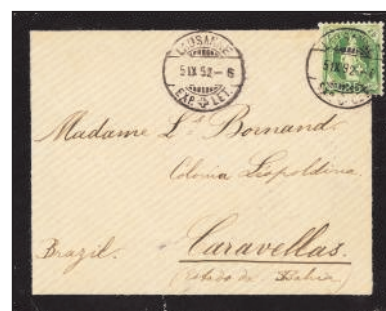 LAUSANNE
5 IX 92 - 6
EXP. LET.
5 IX 92 - 6
Madame Ls. Bornand.
Colonia Leopoldina.
Brazil. Caravellas.
(Estado da Bahia)